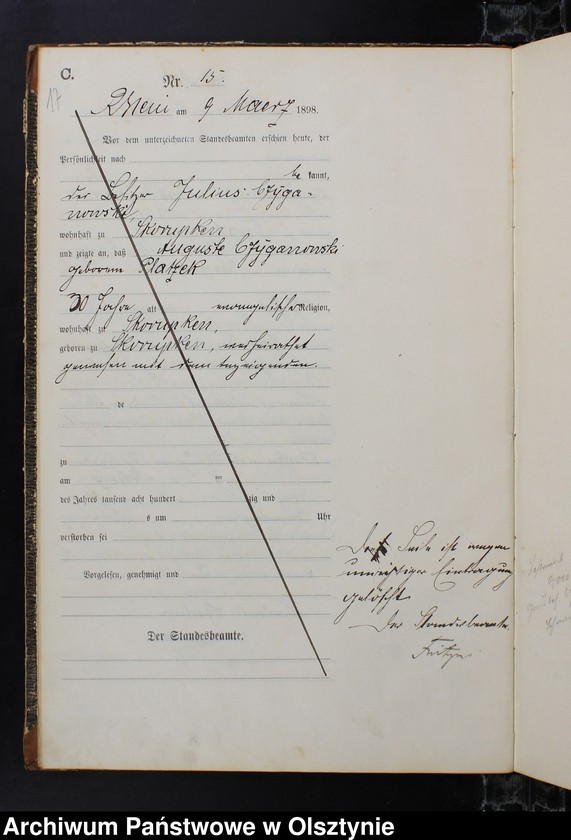 C.
17
Nr. 15.
Rhein am 9 Maerz 1898.
Vor dem unterzeichneten Standesbeamten erschien heute, der
Persönlichkeit nach
be kannt,
der Besitzer Julius Czyga-
nowski,
wohnhaft zu Skorupken
und zeigte an, daß Auguste Czyganowski
geborene Platzek
30 Jahre alt evangelische Religion,
wohnhaft zu Skorupken,
geboren zu Skorupken, verheirathet
gewesen mit dem Anzeigenden.
de
zu
am ten
des Jahres tausend acht hundert zig und
s um Uhr
verstorben sei
Vorgelesen, genehmigt und
Der Standesbeamte.
Seite ist wegen
unrichtiger Eintragung
gelöscht
Der Standesbeamte.
Archiwum Państwowe w Olsztynie